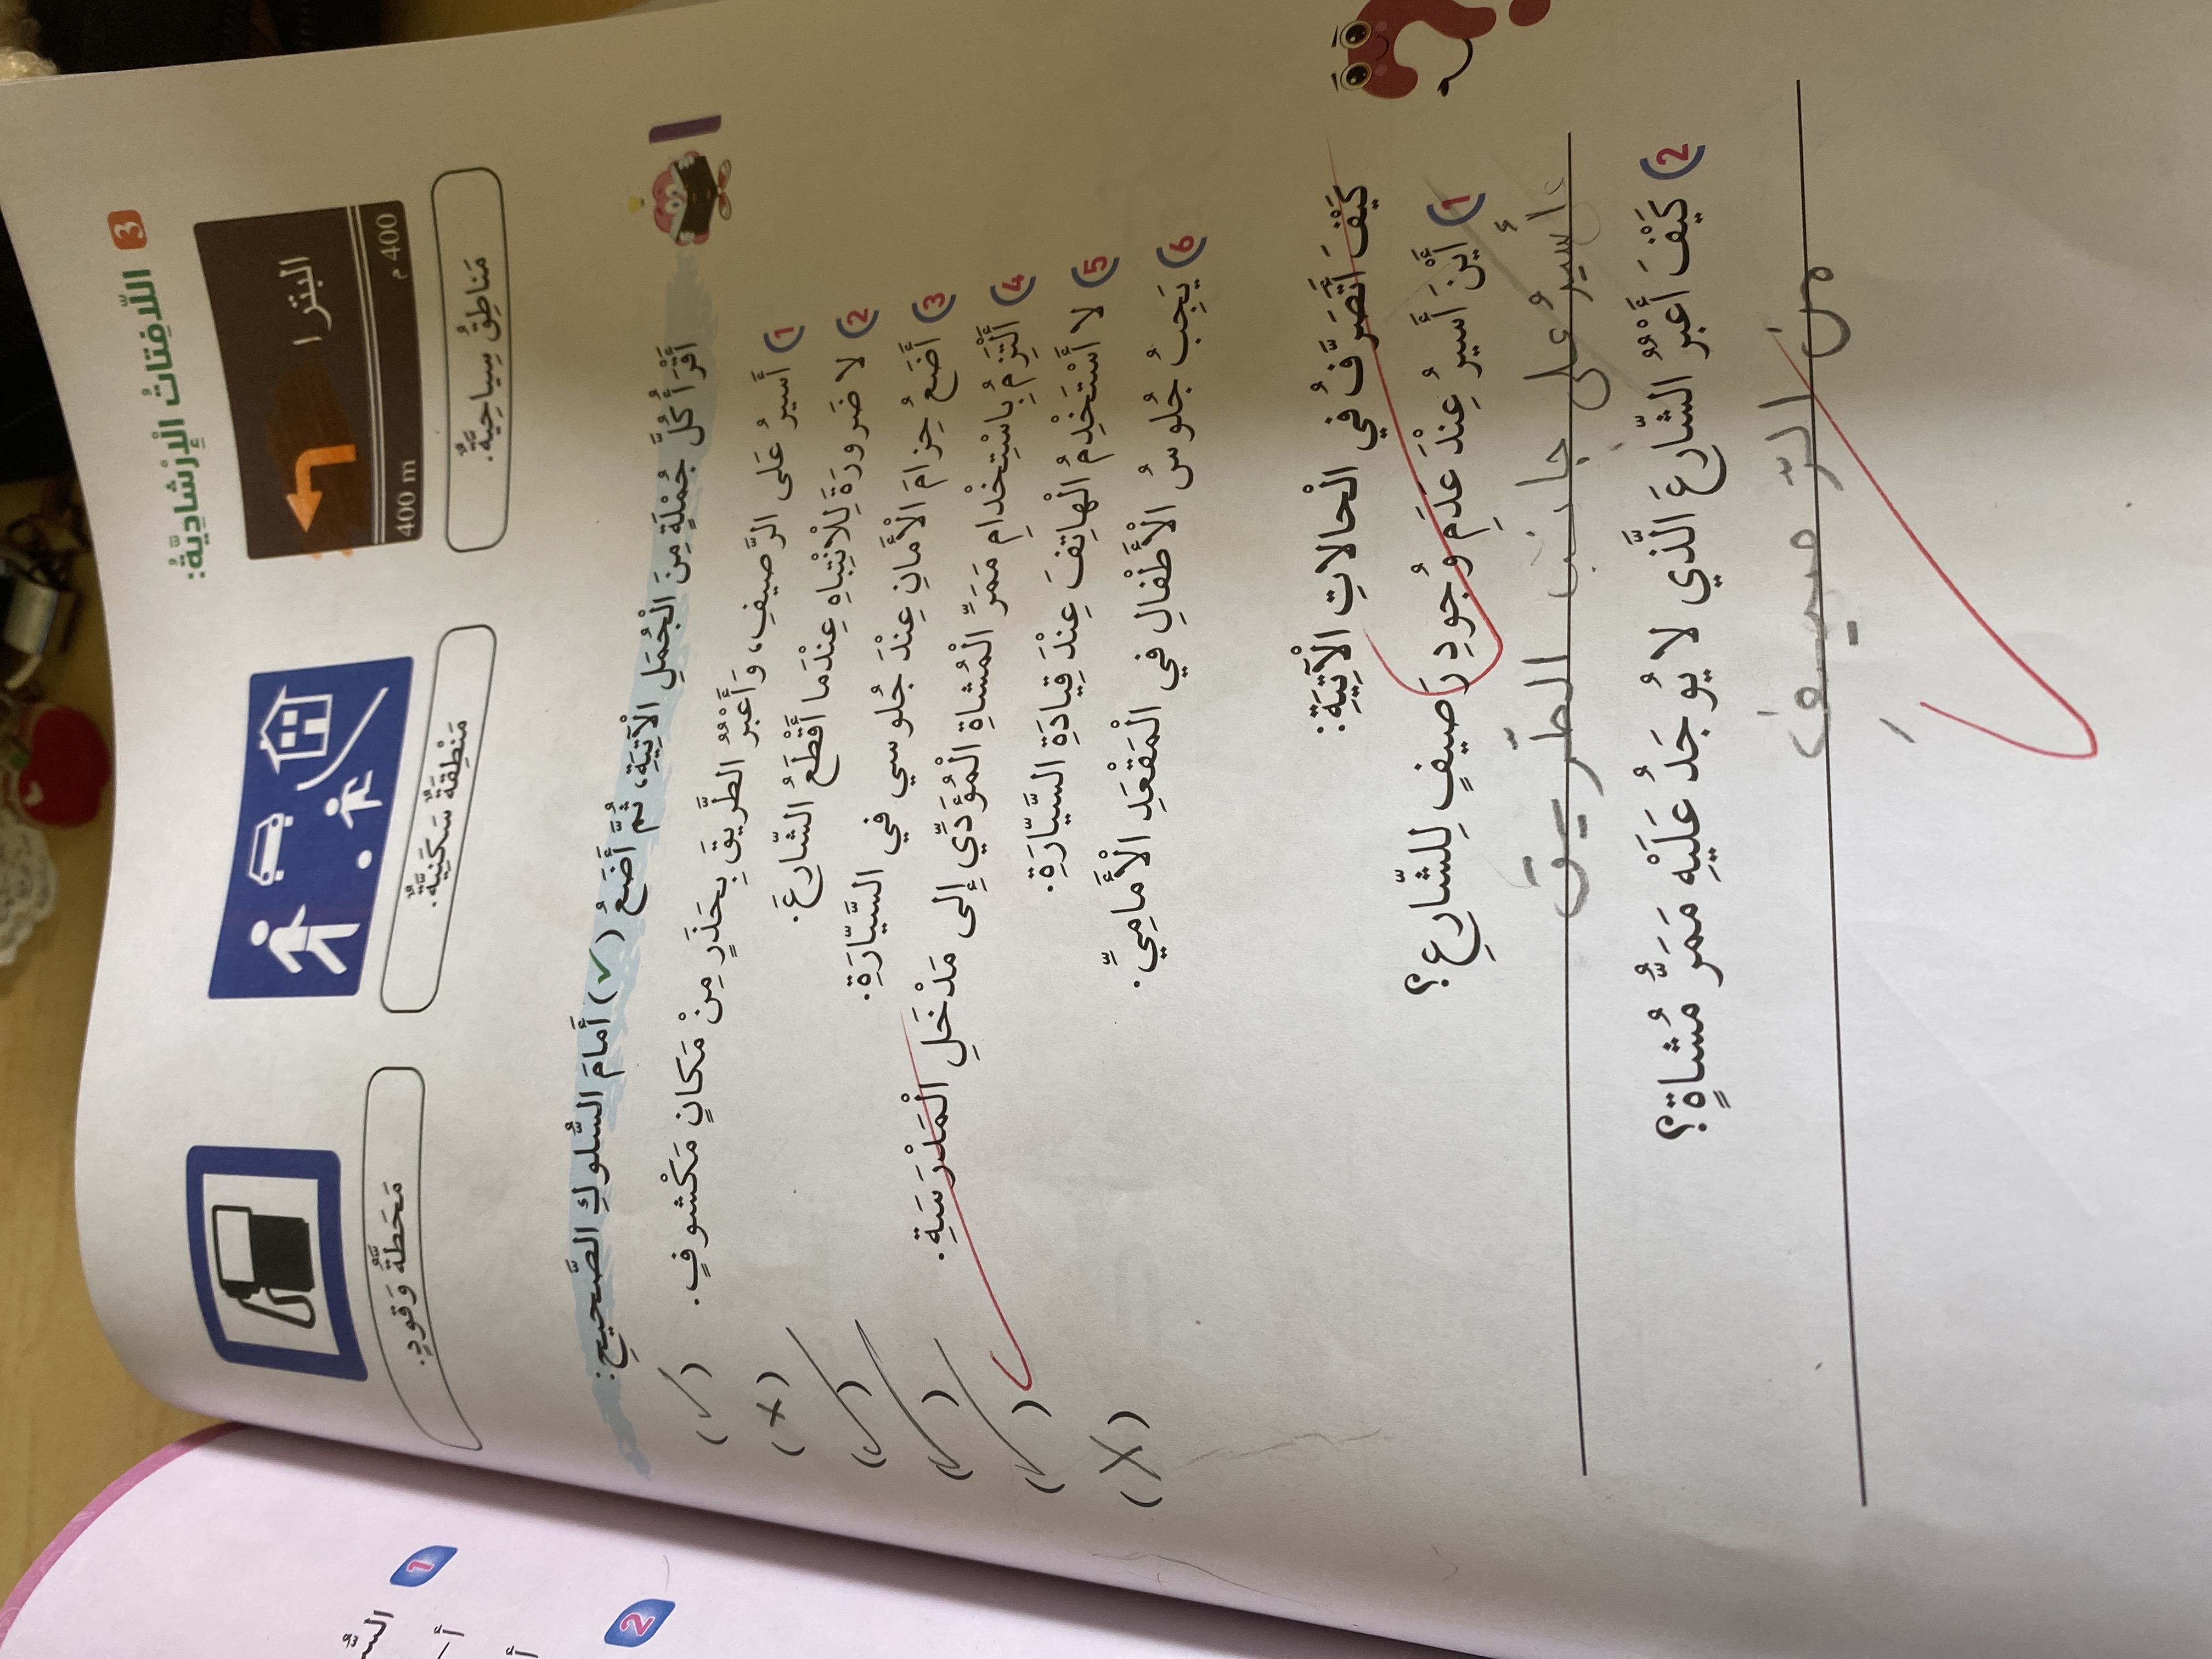 3 اللّافِتاتُ الْإِرْشادِيَّةُ:
البترا
400 م
400 m
مَناطِقُ سِياحِيَّةٌ.
مَنْطِقَةٌ سَكَنِيَّةٌ.
مَحَطَّةُ وَقودٍ.
أَقْرَأُ كُلَّ جُمْلَةٍ مِنَ الْجُمَلِ الْآتِيَةِ، ثُمَّ أَضَعُ (✓) أَمامَ السُّلوكِ الصَّحيحِ:
1) أَسيرُ عَلى الرَّصيفِ، وَأَعْبُرُ الطَّريقَ بِحَذَرٍ مِنْ مَكانٍ مَكْشوفٍ. (✓)
2) لا ضَرورَةَ لِلْانْتِباهِ عِنْدَما أَقْطَعُ الشّارِعَ. (x)
3) أَضَعُ حِزامَ الْأَمانِ عِنْدَ جُلوسي في السَّيّارَةِ. (✓)
4) أَلْتَزِمُ بِاسْتِخْدامِ مَمَرِّ الْمُشاةِ الْمُؤَدّي إِلى مَدْخَلِ الْمَدْرَسَةِ. (✓)
5) لا أَسْتَخْدِمُ الْهاتِفَ عِنْدَ قِيادَةِ السَّيّارَةِ. (✓)
6) يَجِبُ جُلوسُ الْأَطْفالِ في الْمَقْعَدِ الْأَمامِيِّ. (X)
كَيْفَ أَتَصَرَّفُ في الْحالاتِ الْآتِيَةِ:
1) أَيْنَ أَسيرُ عِنْدَ عَدَمِ وُجودِ رَصيفٍ لِلشّارِعِ؟
أسيرُ على جانب الطّريق
2) كَيْفَ أَعْبُرُ الشّارِعَ الَّذي لا يُوجَدُ عَلَيْهِ مَمَرُّ مُشاةٍ؟
من الرّصيف
1 السُّ
2